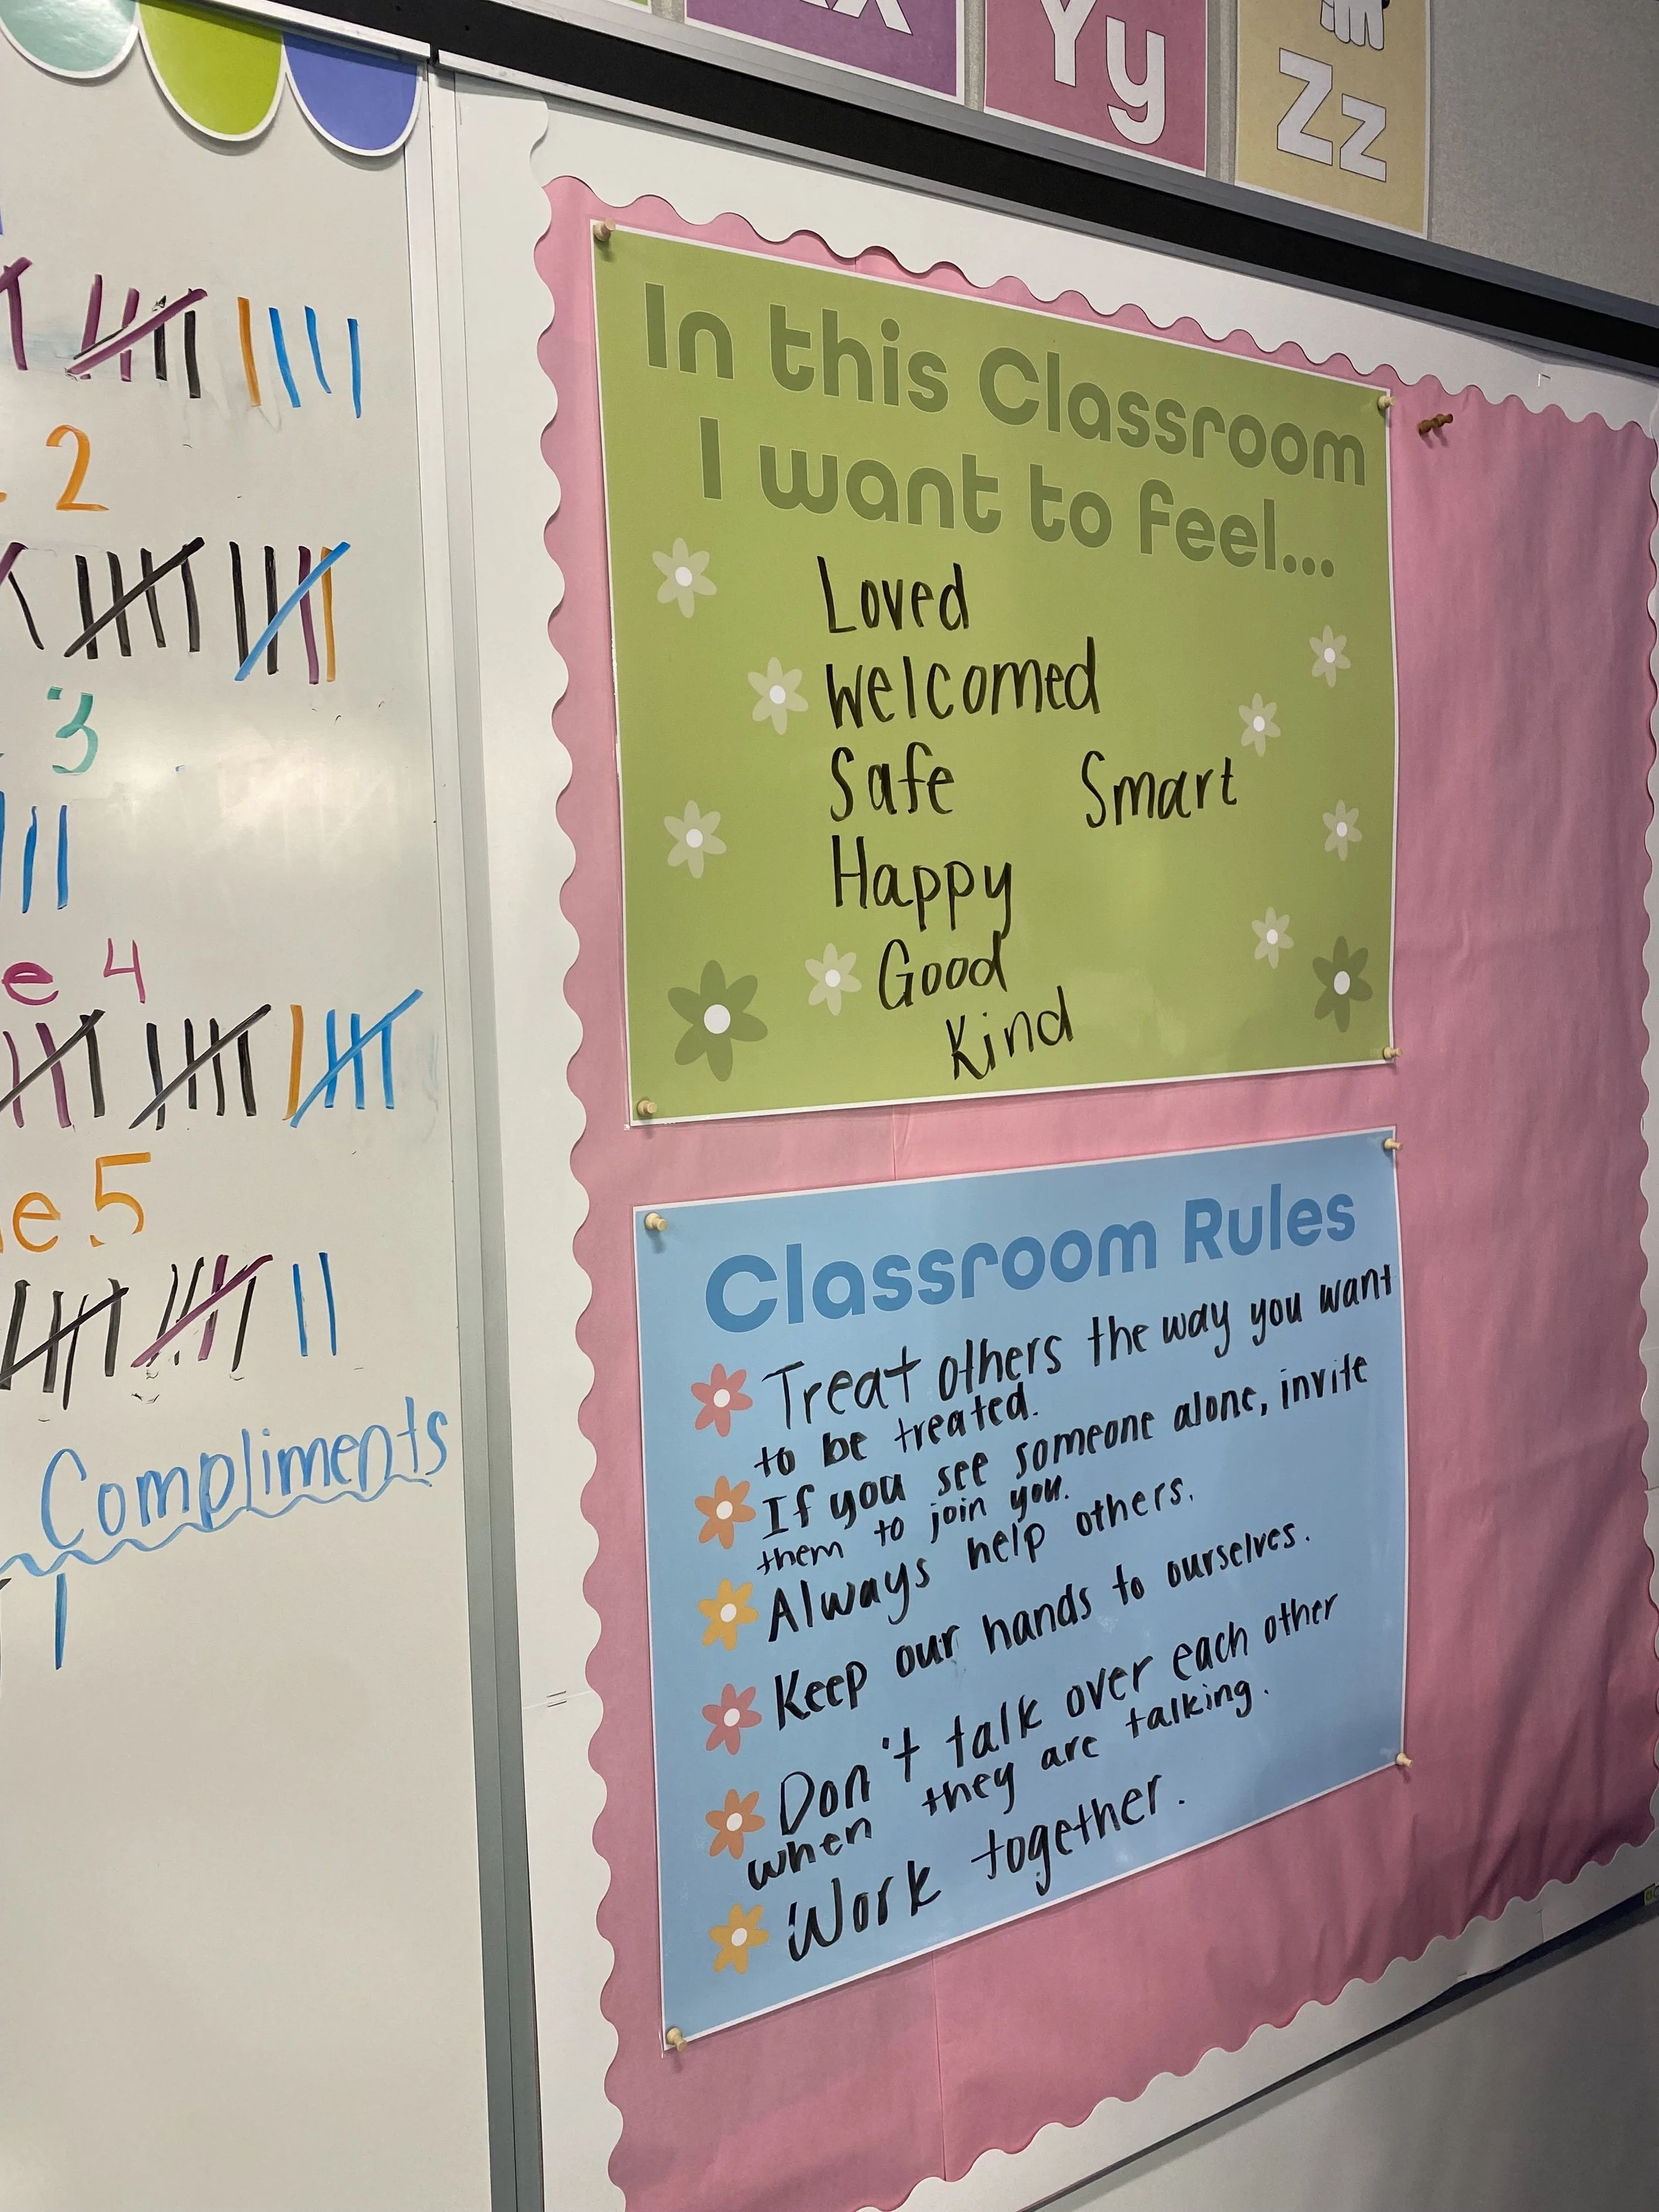 Yy
Zz
2
3
e 4
e 5
Compliments
In this Classroom
I want to feel...
Loved
Welcomed
Safe Smart
Happy
Good
Kind
Classroom Rules
Treat others the way you want
to be treated.
If you see someone alone, invite
them to join you.
Always help others.
Keep our hands to ourselves.
Don't talk over each other
when they are talking.
Work together.